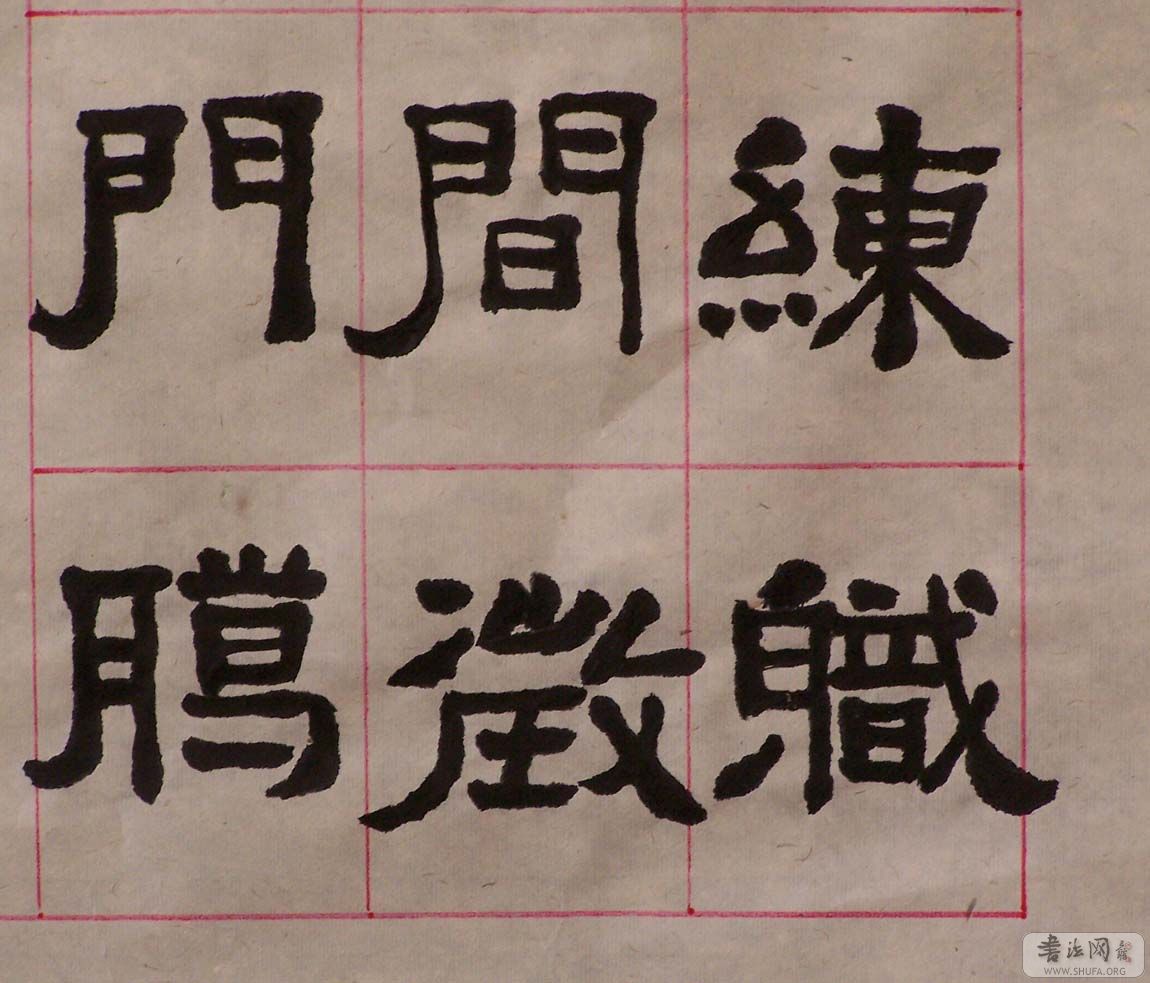 練職
間徵
門臈
书法网
WWW.SHUFA.ORG